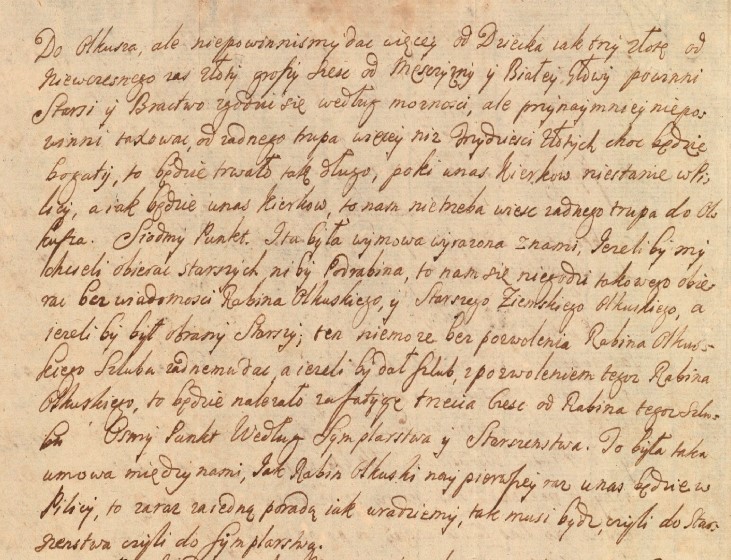 Do Olkusza, ale niepowinnismy dac więcey od Dziecka iak trzy złote od
Niewczesnego zas złoty groszy szesc od Męszyzny y Białey Głowy powinni
Starsi y Bractwo zgodzic się według moznosci, ale przynaymniey niepo-
winni taxowac, od zadnego trupa więcey niz Trzydziesci złotych choc będzie
bogaty, to będzie trwało tak długo, poki unas Kierkow niestanie w Pi-
licy, a iak będzie unas Kierkow, to nam nietrzeba wiesc zadnego trupa do Ol-
kusza. Siodmy Punkt. Ita była wymowa wyrazona znami, Iezeli by my
chcieli obierac starszych ni by Podrabina, to nam się niegodzi takowego obie-
rac bez wiadomosci Rabina Olkuskiego, y Starszego Ziemskiego Olkuskiego, a
iezeli by był obrany Starszy; ten niemoze bez pozwolenia Rabina Olkus-
kiego Szlubu zadnemu dac a iezeli by dał szlub, z pozwoleniem tegoz Rabina
Olkuskiego, to będzie nalezało za fatygę trzecia Czesc od Rabina tegoz Szlu-
bu Osmy Punkt Według Symplarstwa y Starszenstwa. To była taka
umowa między nami, Iak Rabin Olkuski nay pierwszey raz unas będzie w
Pilicy, to zaraz za iedną poradą iak uradziemy, tak musi bydz, czyli do Star-
szenstwa czyli do Symplarstwa.